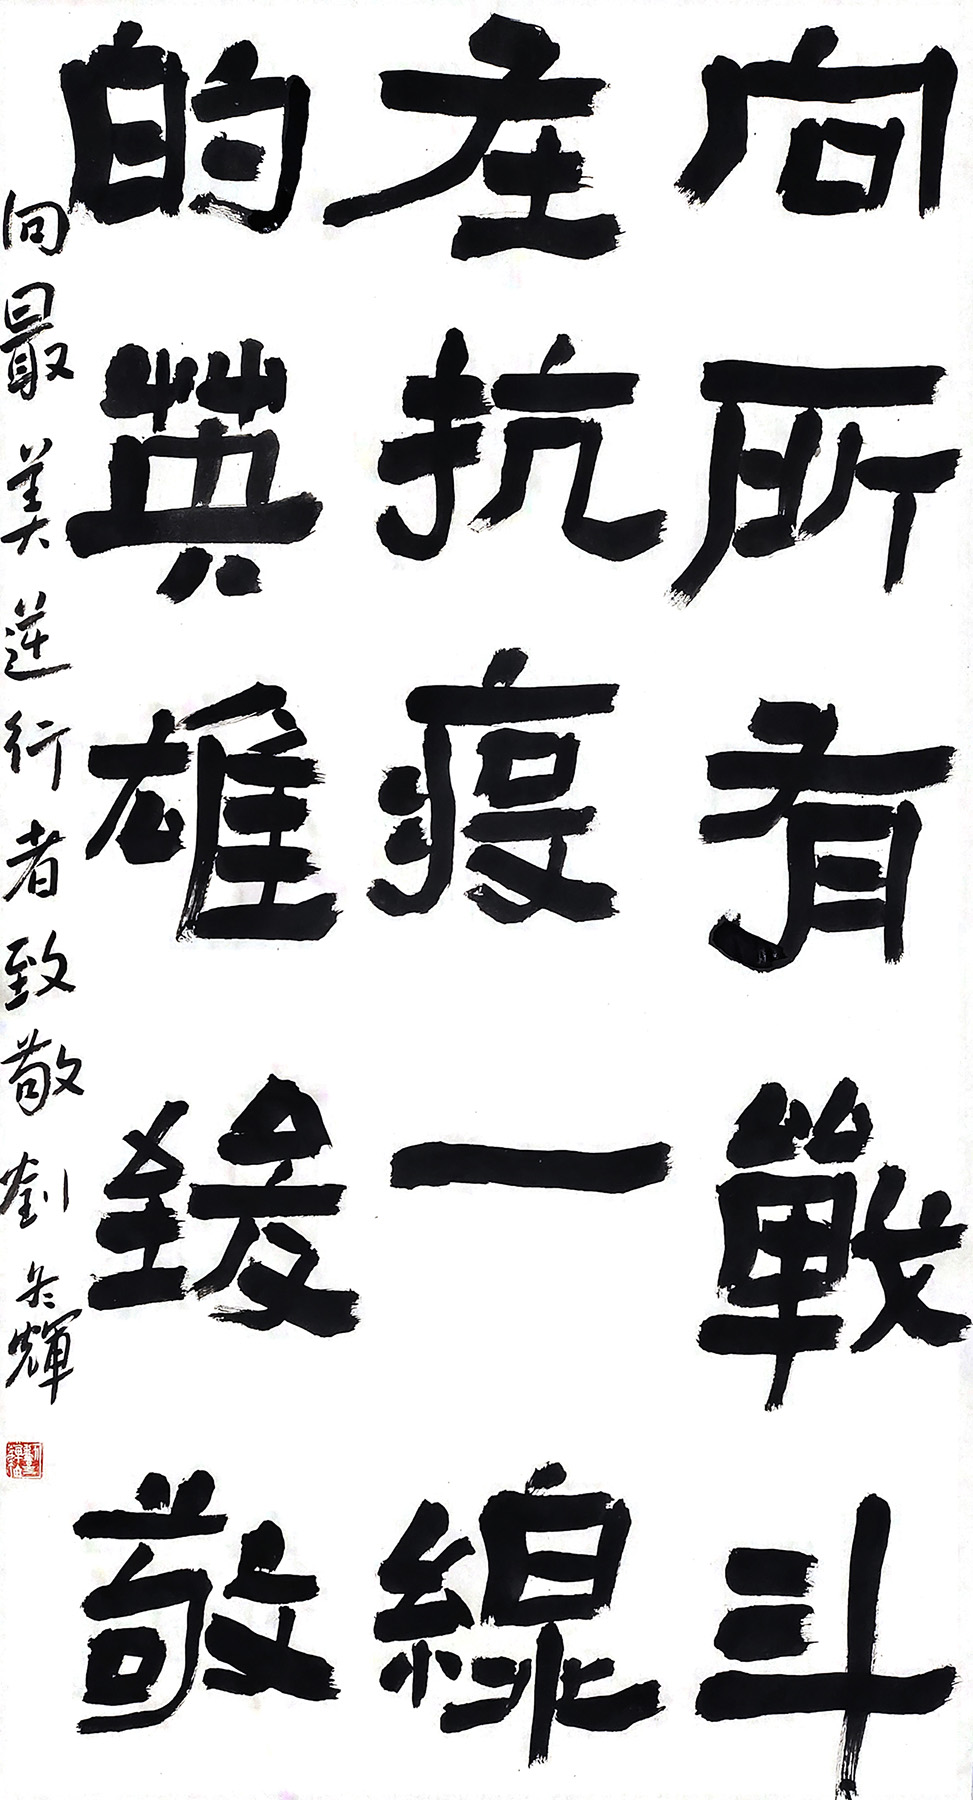 向所有戰斗
在抗疫一線
的英雄致敬
向最美逆行者致敬 劉冬輝